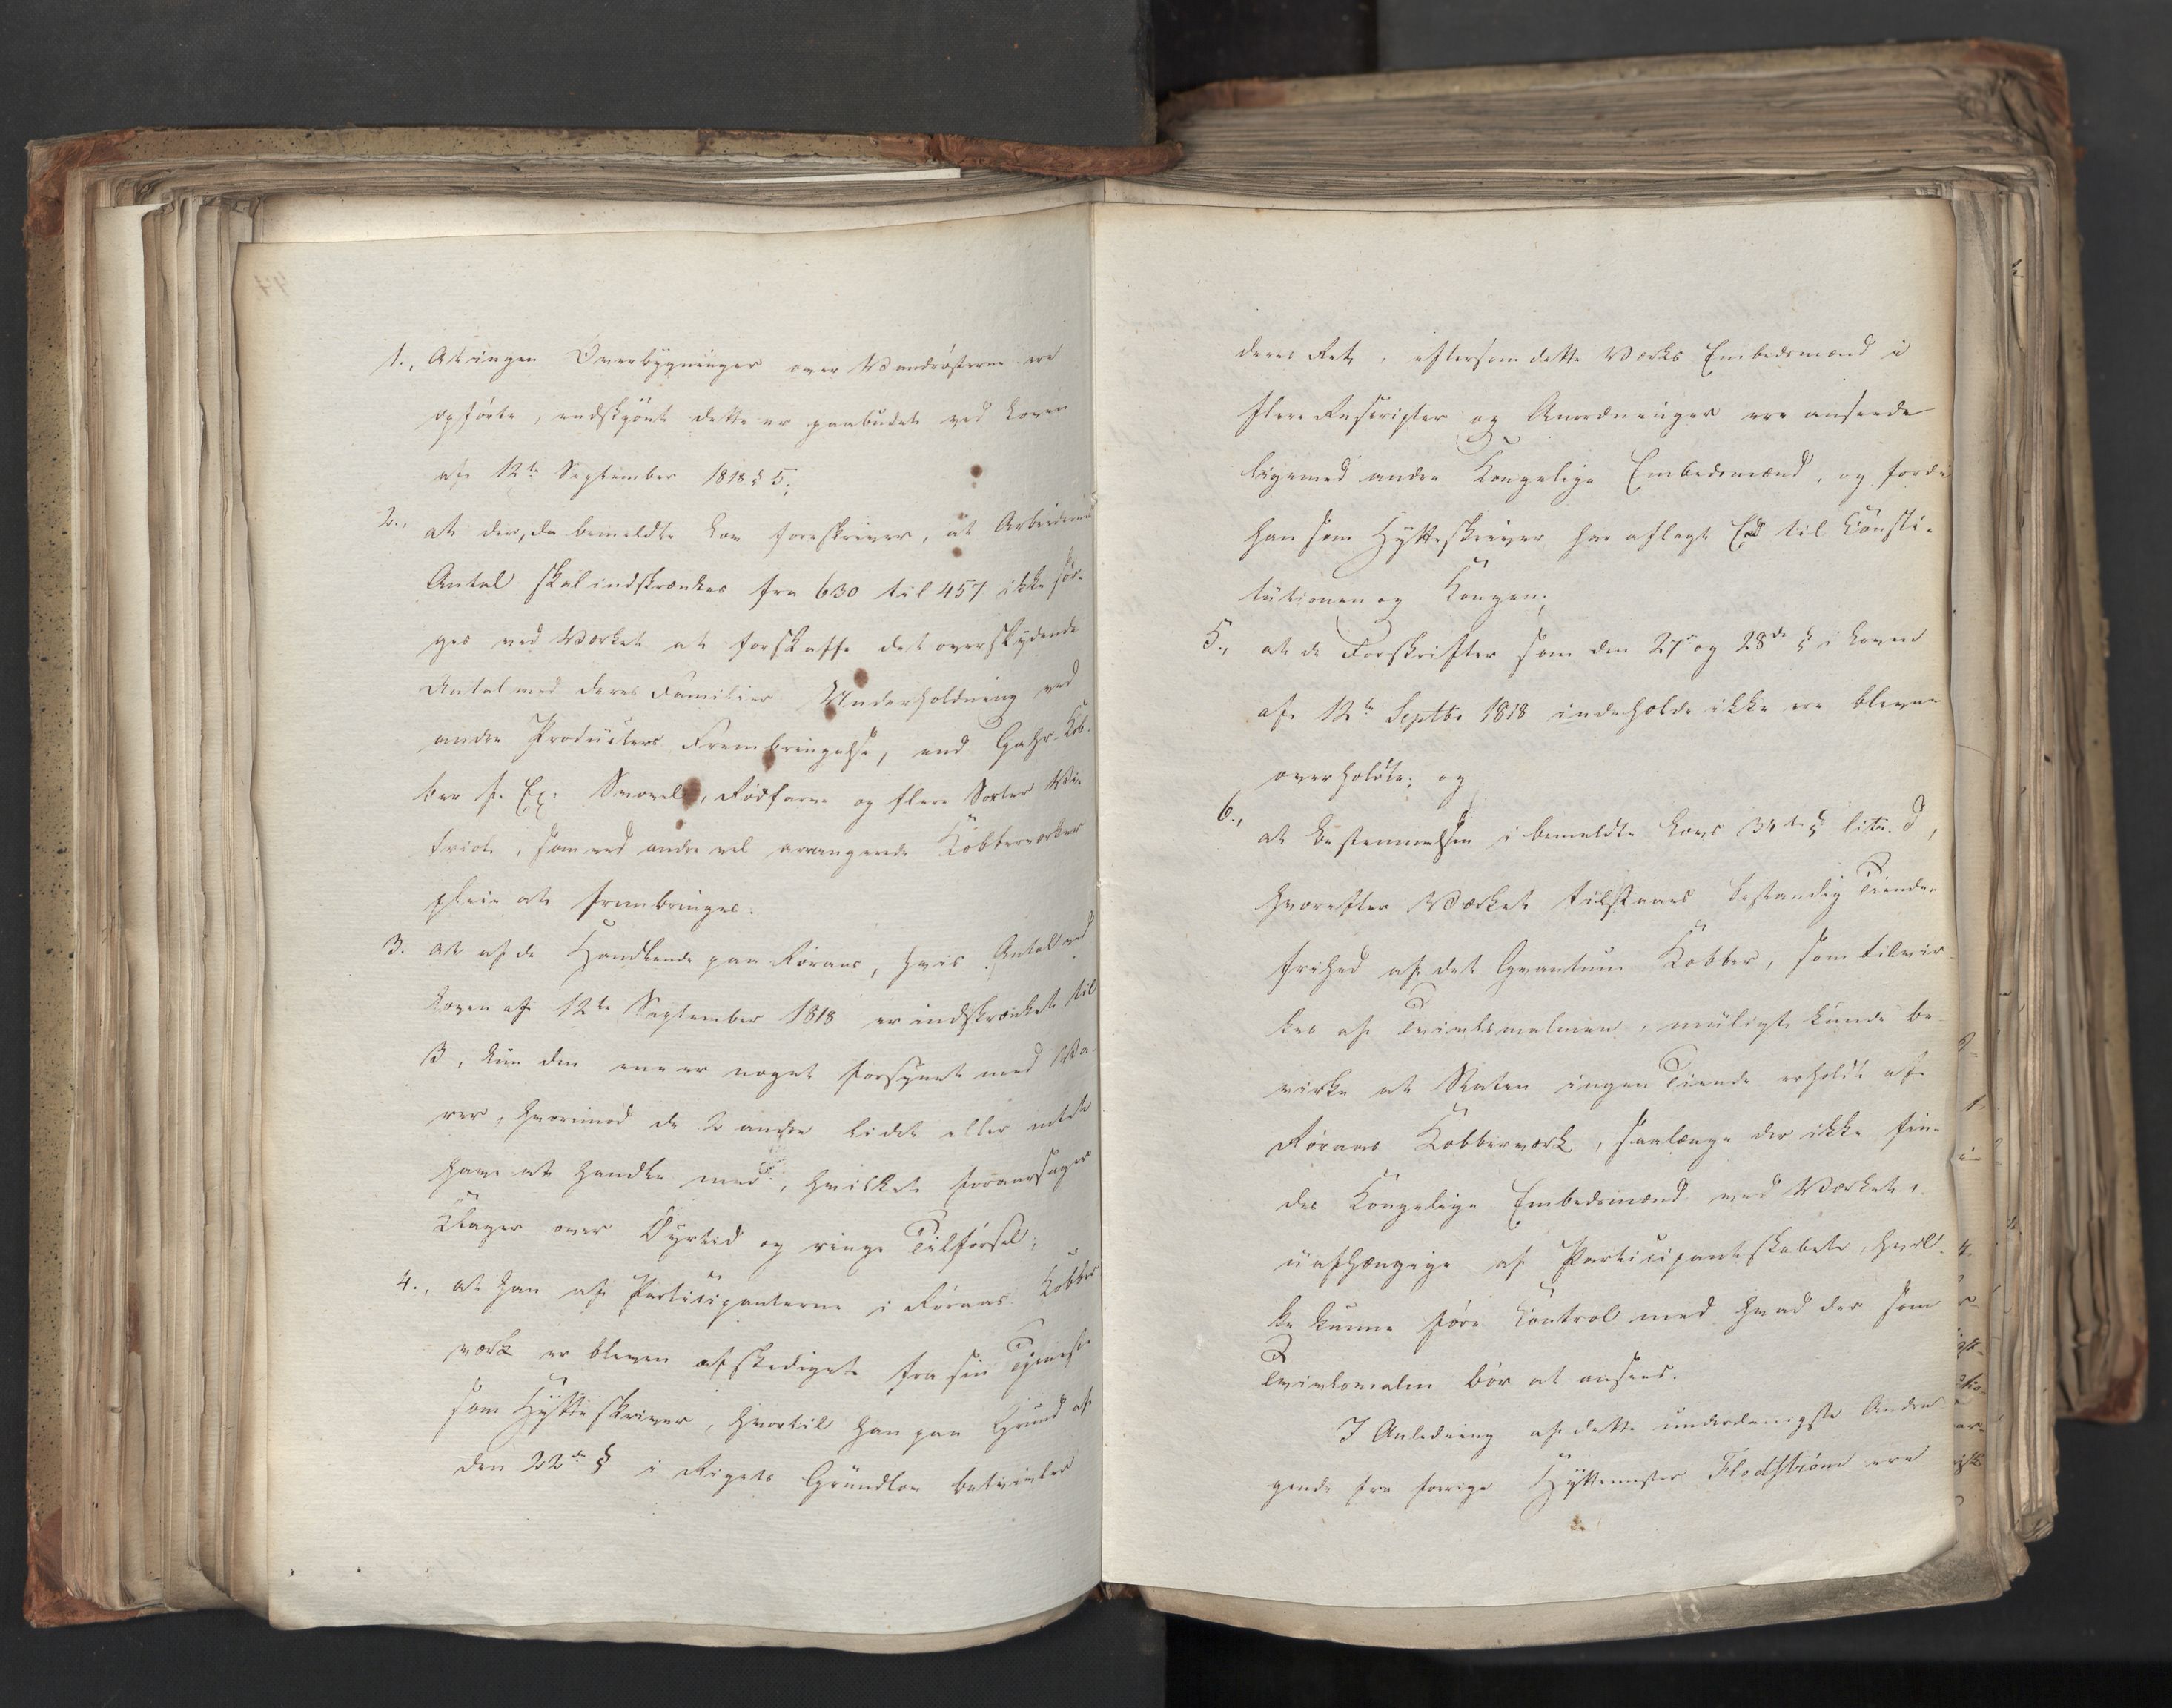 1., At ingen Overbygninger over Vandrösterne ere
opförte, endskjönt dette er paabudet ved Loven
af 12te September 1818 § 5.;
2., at der, da bemeldte Lov foreskriver, at Arbeidernes
Antal skal indskrænkes fra 630 til 457 ikke sör-
ges ved Værket at forskaffe det overskydende
Antal med deres Familier Underholdning ved
andre Producters Frembringelse, end Gahr-Kob-
ber f. Ex: Svovel, Rödfarve og flere Sorter Vi-
triol, som ved andre vel arrangerede Kobberværker
pleie at frembringes.
3. at af de Handlende paa Röraas, hvis Antal ved
Loven af 12te September 1818 er indskrænket til
3, kun den ene er noget forsynet med Va-
rer, hvorimod de 2 andre lidet eller intet
have at handle med, hvilket foraarsager
Klager over Dyrtid og ringe Tilförsel;
4., at han af Participanterne i Röraas Kobber
værk er bleven afskediget fra sin Tjeneste
som Hytteskriver, hvortil han paa Grund af
den 22de § i Rigets Grundlov betvivler
deres Ret, eftersom dette Værks Embedsmænd i
flere Rescripter og Anordninger ere ansеede
ligemed andre Kongelige Embedsmænd, og fordi
han som Hytteskriver har aflagt Eed til Consti-
tutionen og Kongen;
5., at de Forskrifter som den 27de og 28de § i Loven
af 12te Septbr 1818 indeholde ikke ere blevne
overholdte; og
6., at Bestemmelsen i bemeldte Lovs 34te § litr. d,
hvorefter Værket tilstaaes bestandig Tiende-
frihed af det Qvantum Kobber, som tilvir-
kes af Tvivlsmalmen, muligt kunde be-
virke at Staten ingen Tiende erholdt af
Röraas Kobberværk, saalænge der ikke fin-
des Kongelige Embedsmænd ved Værket,
uafhængige af Participantskabet, hvil-
ke kunne före Control med hvad der som
Tvivlsmalm bör at ansees.
I Anledning af dette underdanigste Andra-
gende fra forrige Hyttemester Flodström ere